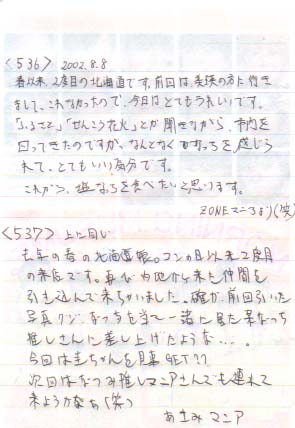 <536> 2002.8.8
春以来、2度目の北海道です。前回は、美瑛の方に行き
まして、これなかったので、今日はとてもうれしいです。
「ふるさと」「せんこう花火」とか聞きながら、市内を
回ってきたのですが、なんとなくなっちを感じら
れて、とてもいい気分です。
これから、塩ならを食べたいと思います。
ZONEマニアより(笑)
<537> 上に同じ
去年の春の北海道 コンの日以来2度目
の来店です。再び内地から来た仲間を
引き込んで来ちゃいました。確か前回引いた
写真クジ、なっちを当て一緒に居た某なっち
推しさんに差し上げたような…。
今回は圭ちゃんを見事GET??
次回はなつみ推しマニアさんでも連れて
来ようかなぁ(笑)
あさみマニア